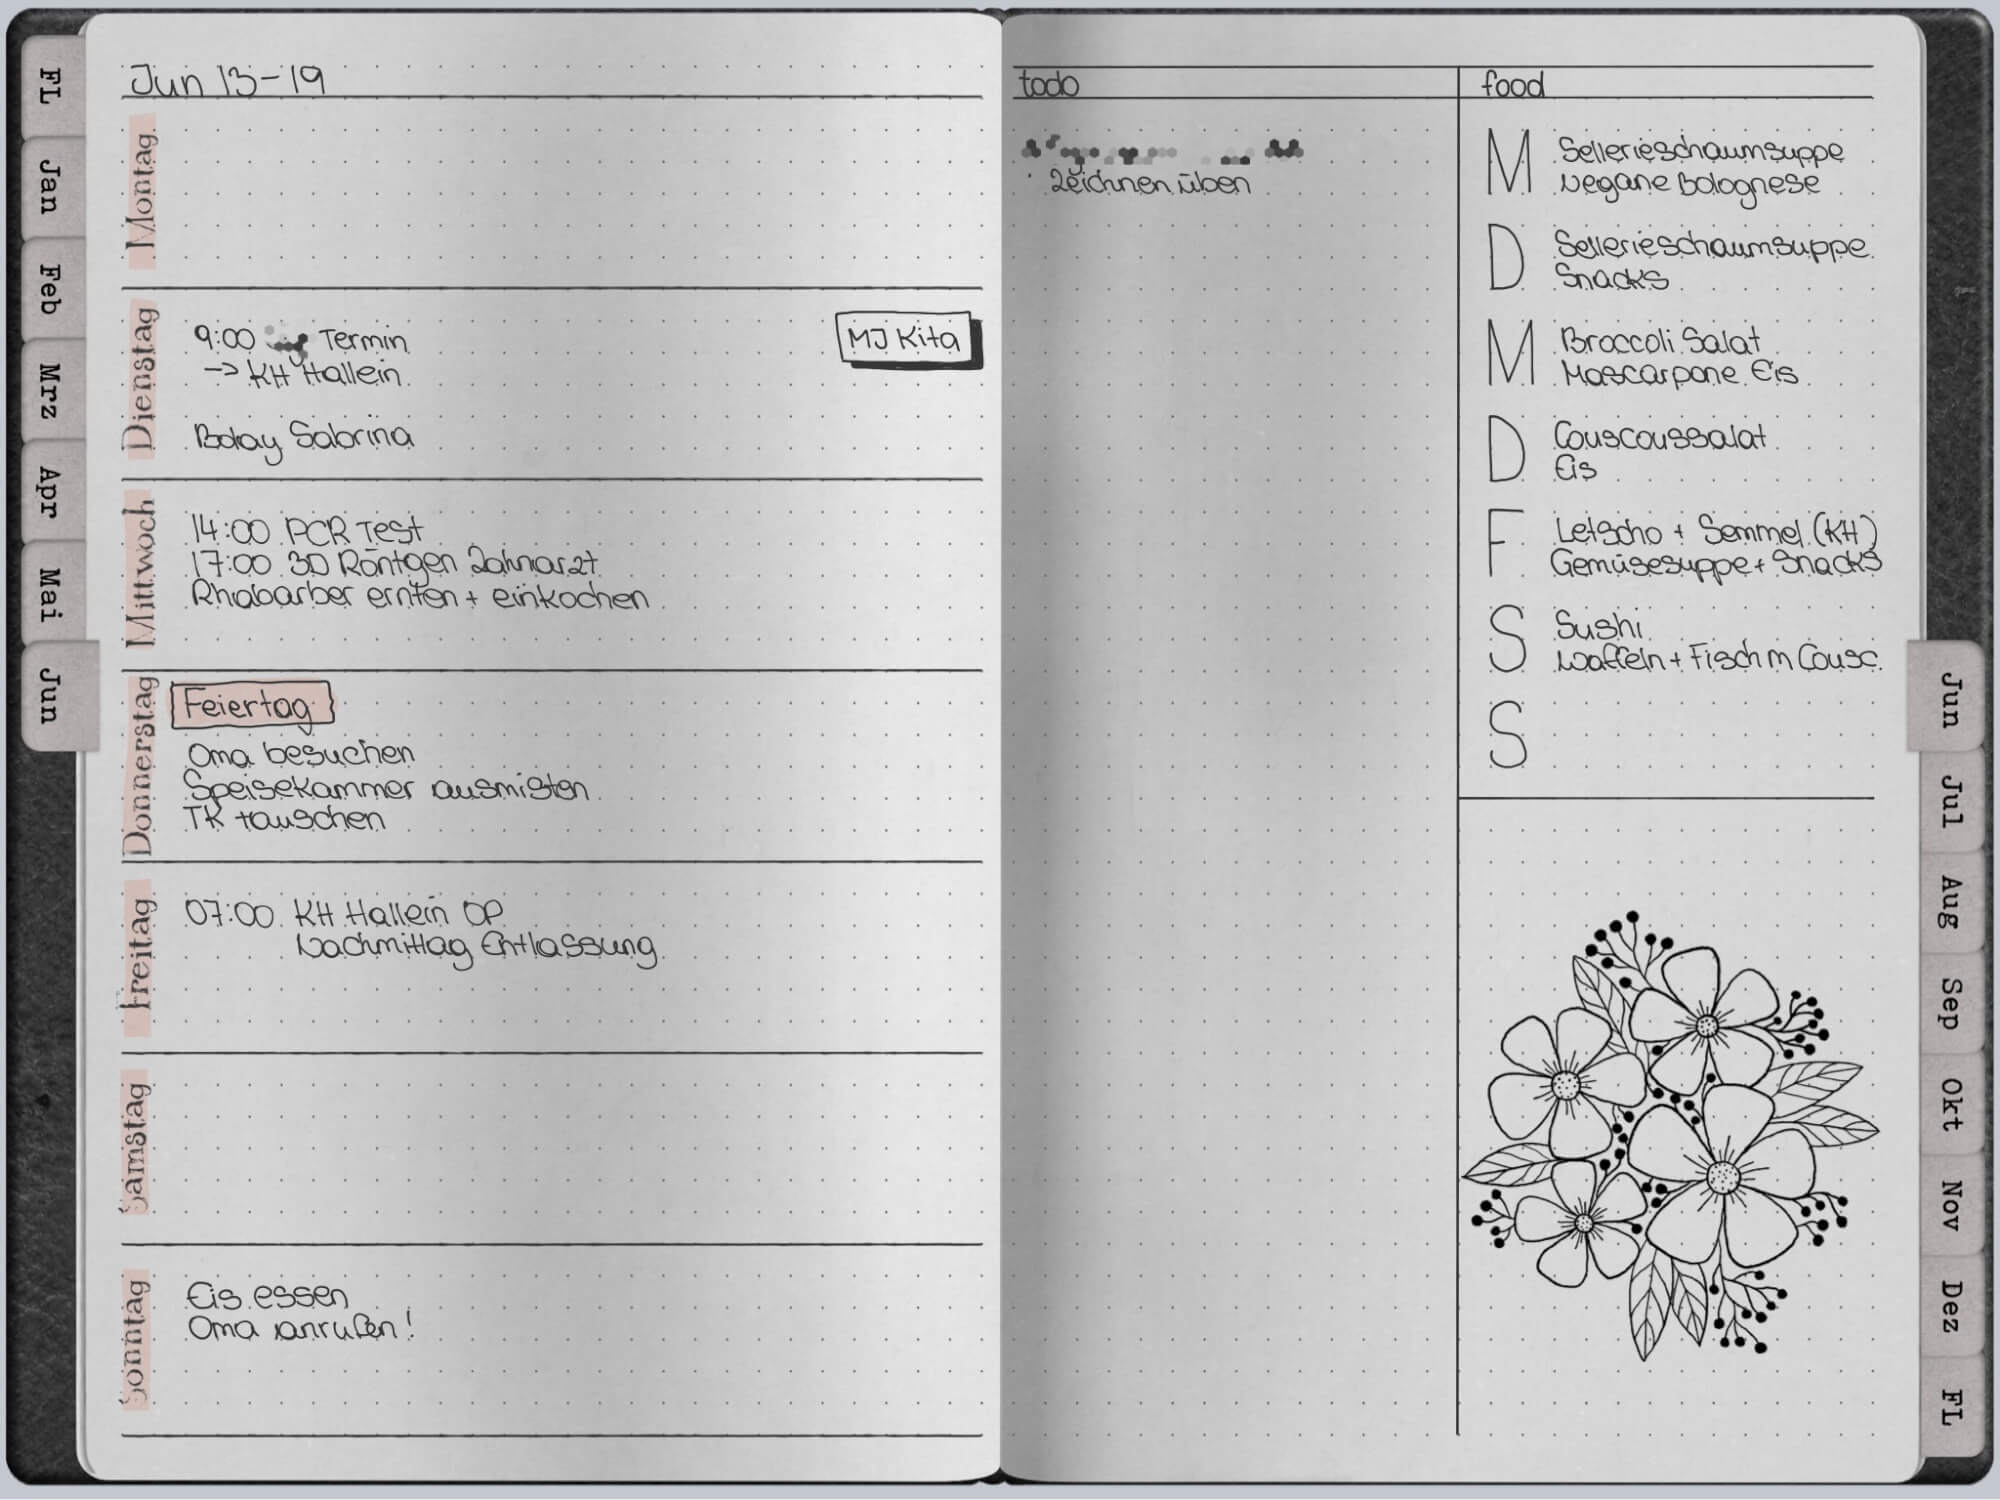 FL
Jan
Feb
Mrz
Apr
Mai
Jun
Jun 13-19
Montag
Dienstag
9:00 Termin
-> KH Hallein
MJ Kita
Bday Sabrina
Mittwoch
14:00 PCR Test
17:00 3D Röntgen Zahnarzt
Rhabarber ernten + einkochen
Donnerstag
Feiertag
Oma besuchen
Speisekammer ausmisten
TK tauschen
Freitag
07:00 KH Hallein OP
Nachmittag Entlassung
Samstag
Sonntag
Eis essen
Oma anrufen!
todo
Zeichnen üben
food
M Sellerieschaumsuppe
vegane Bolognese
D Sellerieschaumsuppe
Snacks
M Broccoli Salat
Mascarpone Eis
D Couscoussalat
Eis
F Letscho + Semmel (KH)
Gemüsesuppe + Snacks
S Sushi
Waffeln + Fisch m Cousc.
S
Jun
Jul
Aug
Sep
Okt
Nov
Dez
FL